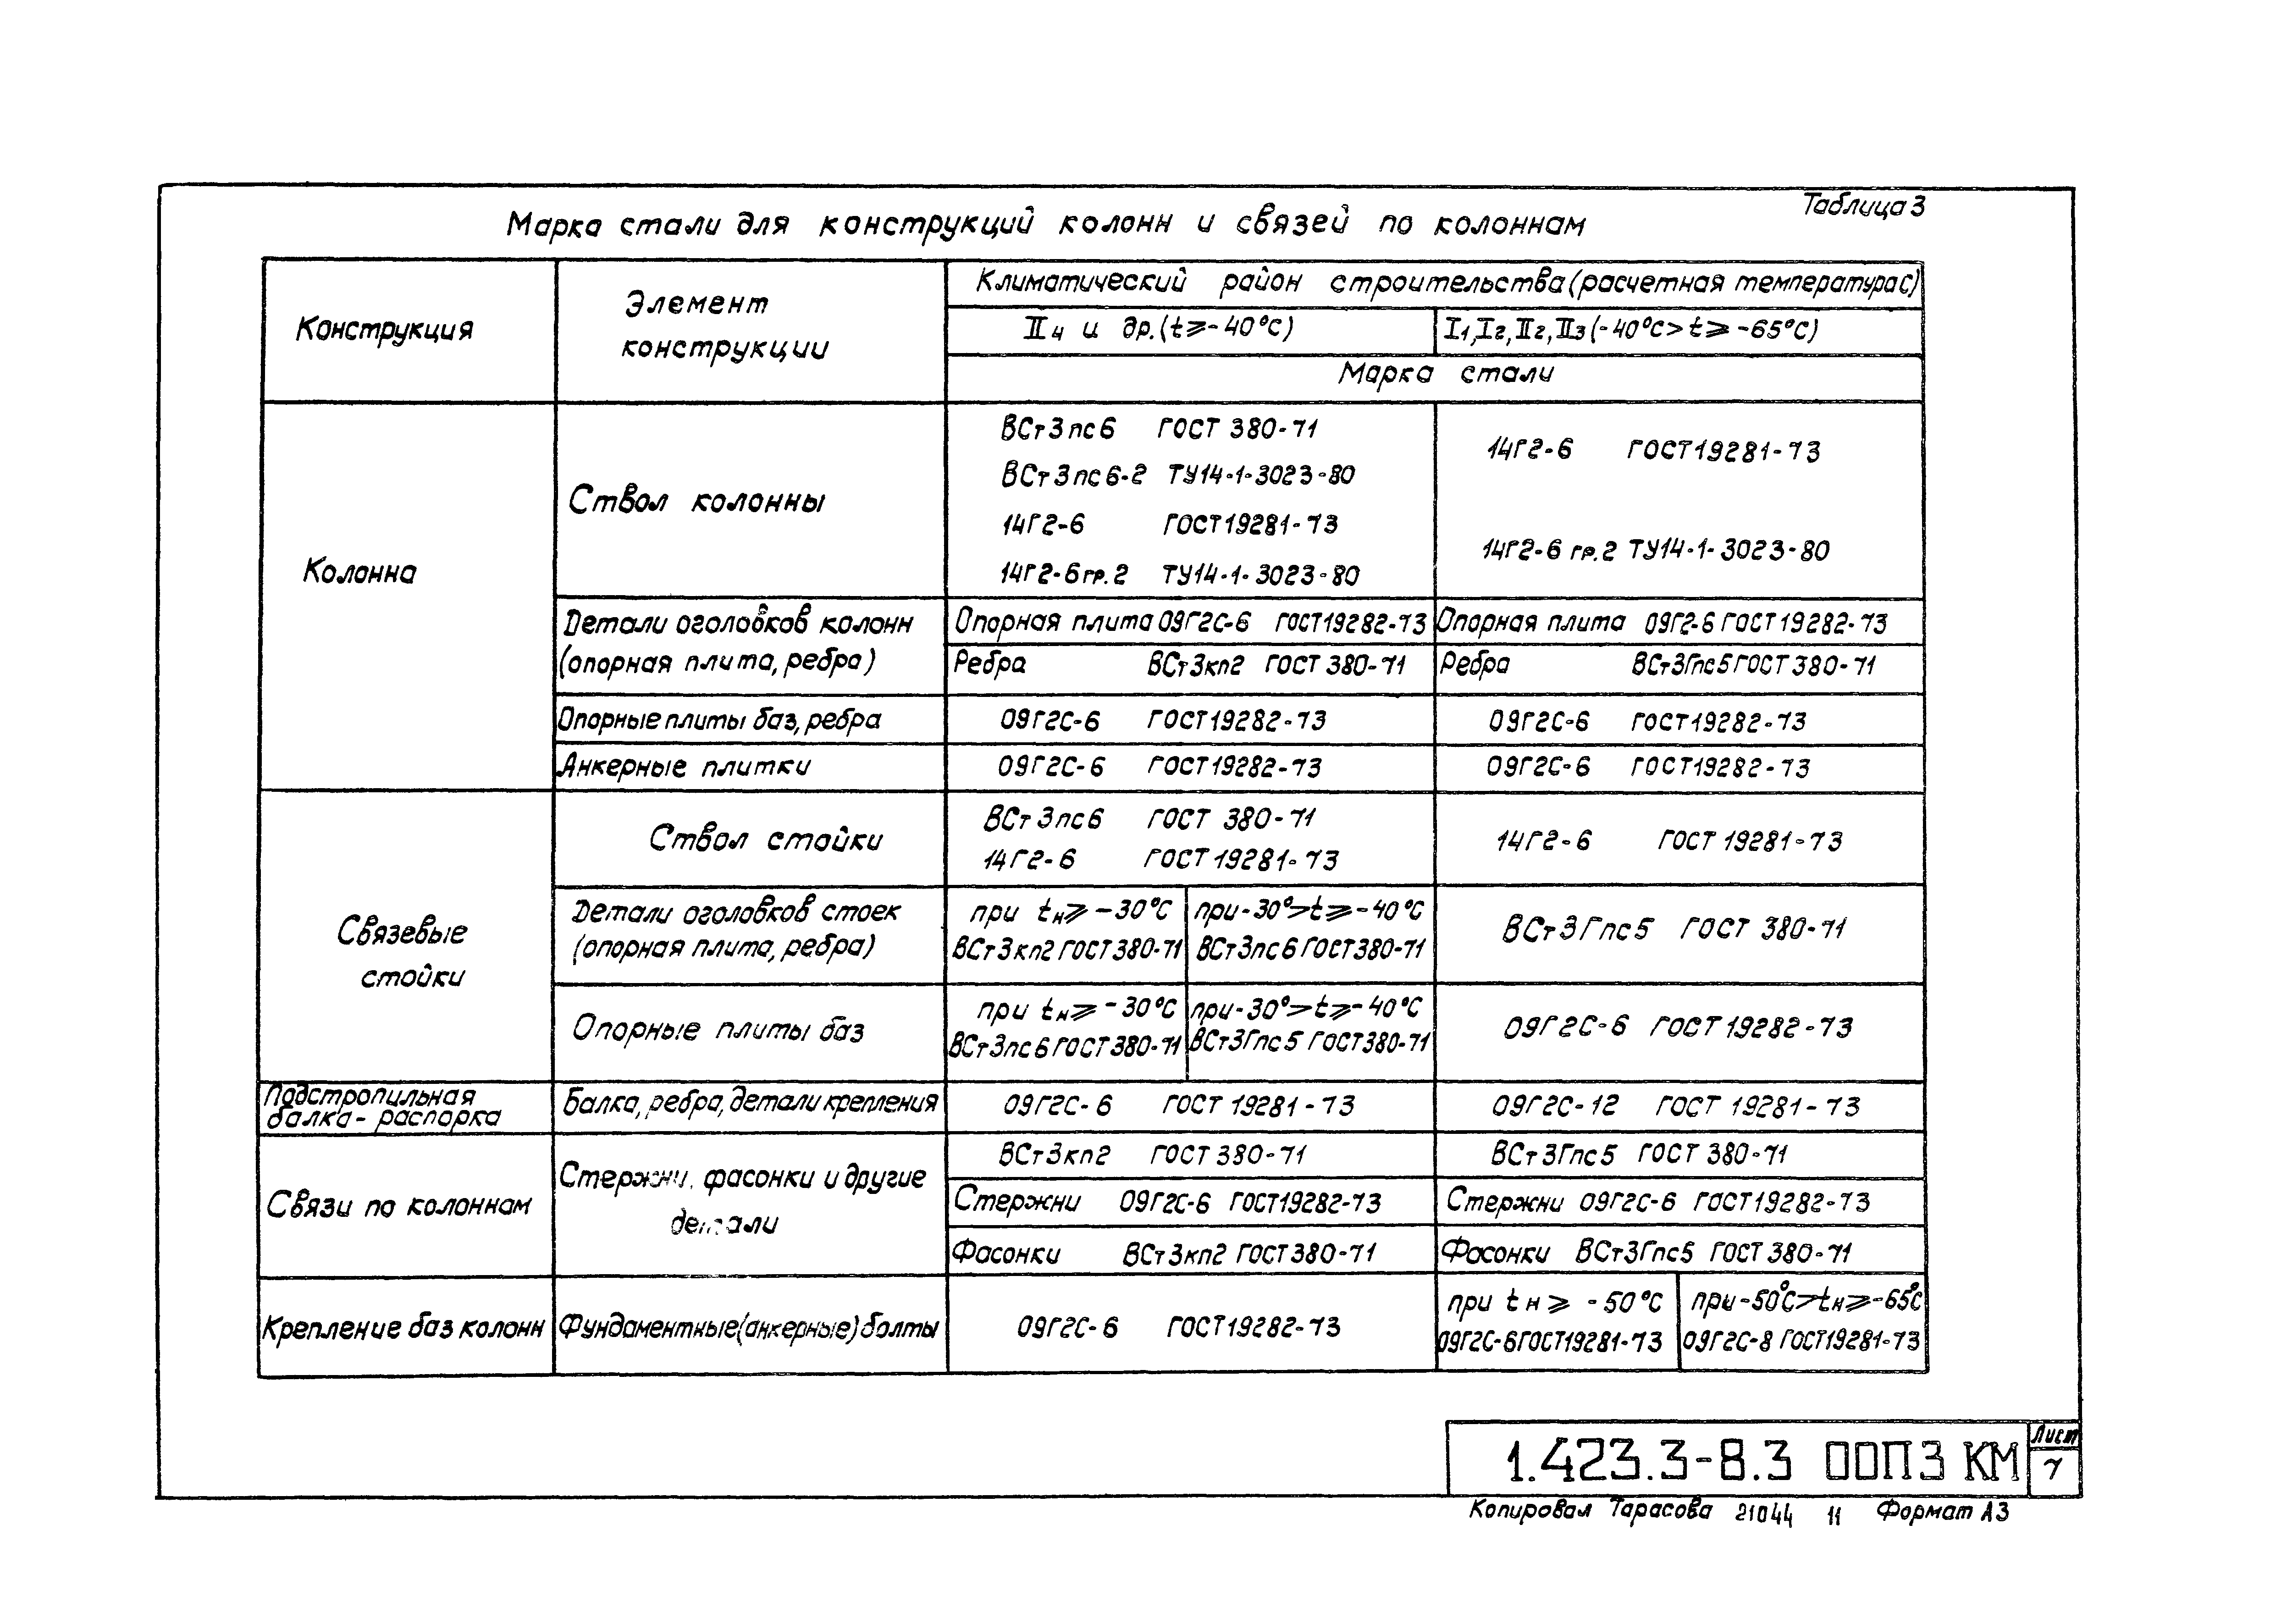 Таблица 3
Марка стали для конструкций колонн и связей по колоннам
Конструкция
Элемент
конструкции
Климатический район строительства (расчетная температура с)
II4 и др. (t ⩾ -40°С)
I1, I2, II2, II3 (-40°С > t ⩾ -65°С)
Марка стали
Колонна
Ствол колонны
ВСт3пс6 ГОСТ 380-71
ВСт3пс6-2 ТУ14-1-3023-80
14Г2-6 ГОСТ19281-73
14Г2-6гр.2 ТУ14-1-3023-80
14Г2-6 ГОСТ19281-73
14Г2-6 гр.2 ТУ14-1-3023-80
Детали оголовков колонн
(опорная плита, ребра)
Опорная плита 09Г2С-6 ГОСТ19282-73
Опорная плита 09Г2-6 ГОСТ19282-73
Ребра ВСт3кп2 ГОСТ 380-71
Ребра ВСт3Гпс5 ГОСТ 380-71
Опорные плиты баз, ребра
09Г2С-6 ГОСТ19282-73
09Г2С-6 ГОСТ19282-73
Анкерные плитки
09Г2С-6 ГОСТ19282-73
09Г2С-6 ГОСТ19282-73
Связевые
стойки
Ствол стойки
ВСт3пс6 ГОСТ 380-71
14Г2-6 ГОСТ19281-73
14Г2-6 ГОСТ 19281-73
Детали оголовков стоек
(опорная плита, ребра)
при tн ⩾ -30°С
ВСт3кп2 ГОСТ380-71
при -30° > t ⩾ -40°С
ВСт3пс6 ГОСТ380-71
ВСт3Гпс5 ГОСТ 380-71
Опорные плиты баз
при tн ⩾ -30°С
ВСт3пс6 ГОСТ380-71
при -30° > t ⩾ -40°С
ВСт3Гпс5 ГОСТ380-71
09Г2С-6 ГОСТ19282-73
Подстропильная
балка - распорка
Балка, ребра, детали крепления
09Г2С-6 ГОСТ 19281-73
09Г2С-12 ГОСТ 19281-73
Связи по колоннам
Стержни, фасонки и другие
детали
ВСт3кп2 ГОСТ 380-71
ВСт3Гпс5 ГОСТ 380-71
Стержни 09Г2С-6 ГОСТ19282-73
Стержни 09Г2С-6 ГОСТ19282-73
Фасонки ВСт3кп2 ГОСТ380-71
Фасонки ВСт3Гпс5 ГОСТ380-71
Крепление баз колонн
Фундаментные (анкерные) болты
09Г2С-6 ГОСТ19282-73
при tн ⩾ -50°С
09Г2С-6 ГОСТ19281-73
при -50°С > tн ⩾ -65°С
09Г2С-8 ГОСТ19281-73
1.423.3-8.3 00ПЗ КМ
Лист
7
Копировал Тарасова 21044 11 Формат А3